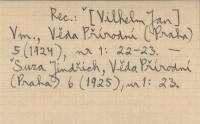 Rec.: [Vilhelm Jan]
Vm., Věda Přírodní (Praha)
5 (1924), nr 1: 22-23. —
Suza Jindřich, Věda Přírodní
(Praha) 6 (1925), nr 1: 23.